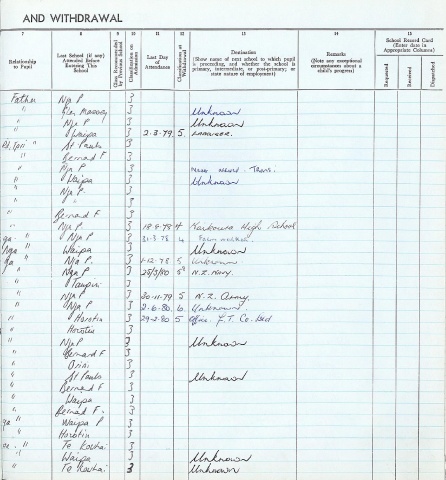 AND WITHDRAWAL
7 8 9 10 11 12 13 14 15
Relationship to Pupil
Last School (if any) Attended Before Entering This School
Class Recommended by Previous School
Classification on Admission
Last Day of Attendance
Classification at Withdrawal
Destination
(Show name of next school to which pupil is proceeding, and whether the school is primary, intermediate, or post-primary; or state nature of employment)
Remarks
(Note any exceptional circumstances about a child's progress)
School Record Card
(Enter date in Appropriate Column)
Requested
Received
Dispatched
Father Nga P 3
" Glen Massey 3 Unknown
" Nga P 3 Unknown
" Waipa 3 2-3-79 5 Labourer.
" St Pauls 3
" Bernard F 3
" Nga P 3
" Waipa 3 Unknown
" Nga P. 3
" " 3
Bernard F 3
" Nga P 3 4 High School
" Nga P 3 31-3-78 4
" Waipa 3 Unknown
" Nga P. 3 1-12-78 5 Unknown
" Nga P 3 N.Z. Navy.
Taupiri 3
" Nga P 3 30-11-79 5 N.Z. Army.
" Nga P 3 2-6-80 6 Unknown
" Horotiu 3 29-2-80 5 L.T. Co. Ltd
" Horotiu 3
" Nga P 3 Unknown
" Bernard F 3
" Orini 3
" St Pauls 3 Unknown
" Bernard F 3
" Waipa 3
" Bernard F. 3
" Waipa P 3
" Horotiu 3
" Te Kowhai 3
" Waipa 3 Unknown
" Te Kowhai 3 Unknown